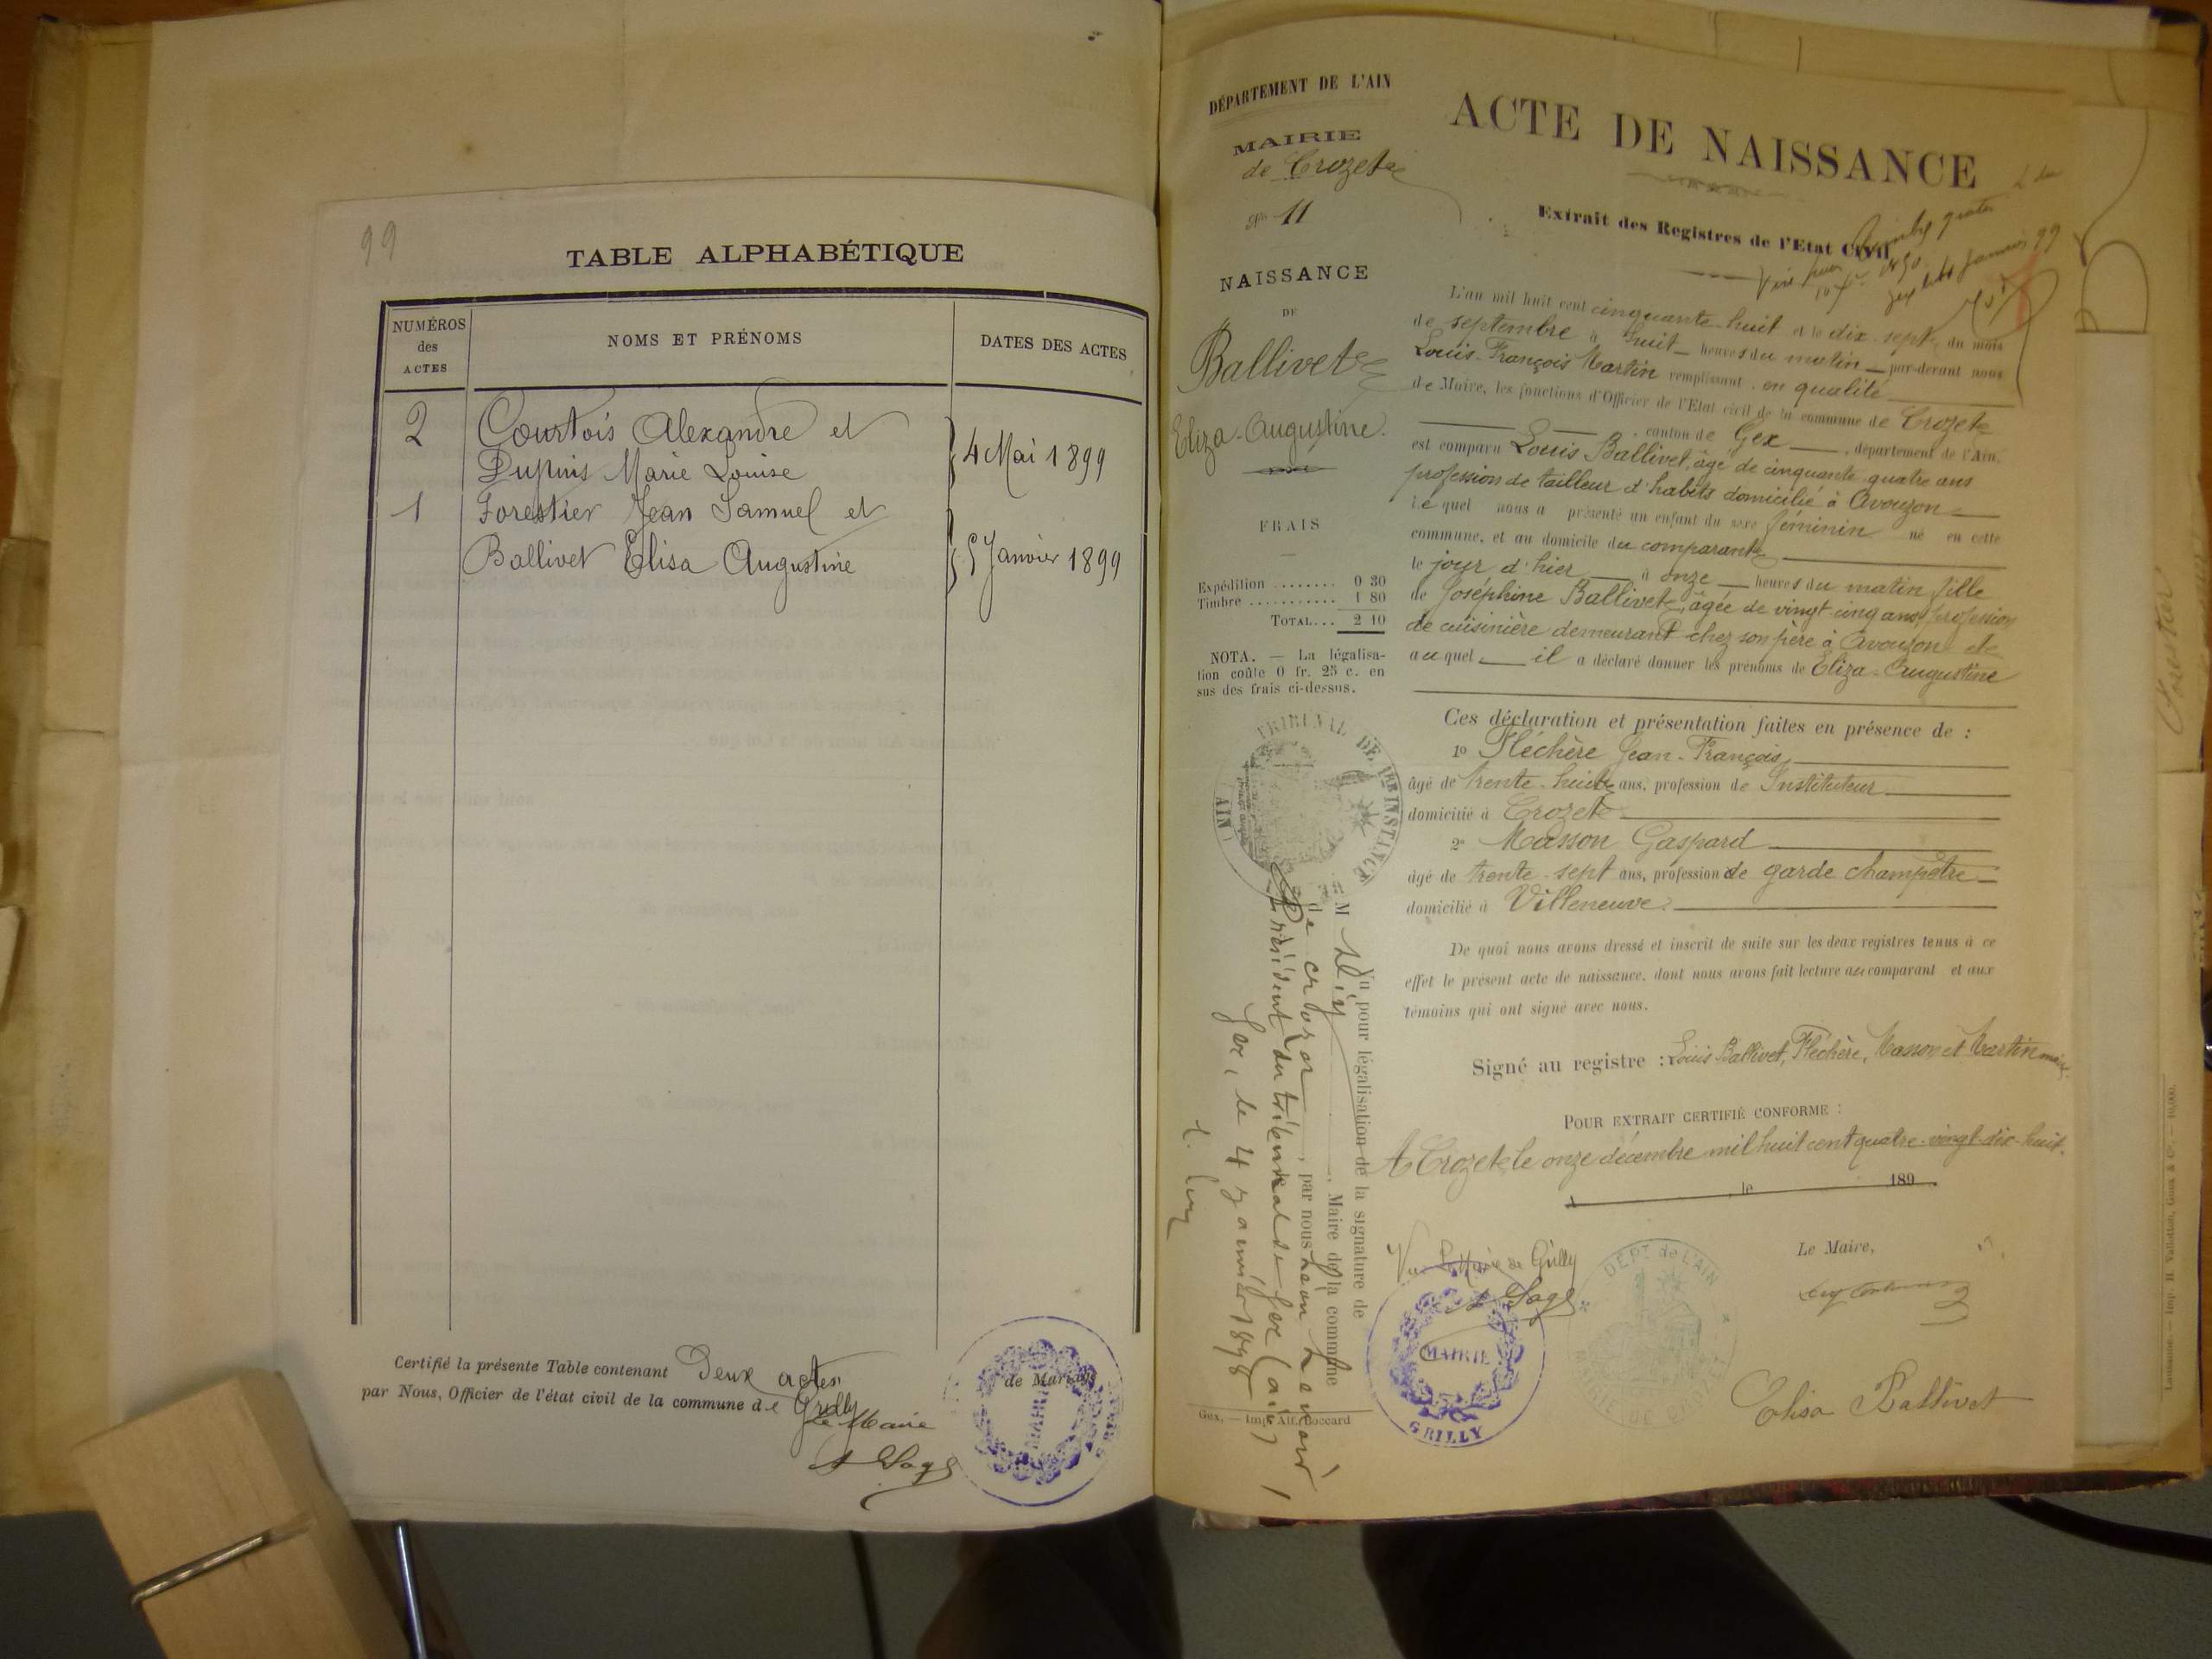 99
TABLE ALPHABÉTIQUE
NUMÉROS
des
ACTES
NOMS ET PRÉNOMS
DATES DES ACTES
2 Courtois Alexandre et
Dupuis Marie Louise
4 Mai 1899
1 Forestier Jean Samuel et
Ballivet Elisa Augustine
5 Janvier 1899
Certifié la présente Table contenant Deux actes de Mariage
par Nous, Officier de l'état civil de la commune de Grilly
Le Maire
MAIRIE
DÉPARTEMENT DE L'AIN
MAIRIE
de Crozet
No 11
NAISSANCE
DE
Ballivet
Eliza-Augustine.
FRAIS
Expédition ........ 0 30
Timbre ........... 1 80
TOTAL... 2 10
NOTA. — La légalisa-
tion coûte 0 fr. 25 c. en
sus des frais ci-dessus.
TRIBUNAL DE 1RE INSTANCE
AIN
Vu pour légalisation de la signature de
M
, Maire de la commune
de Crozet, par nous
Président du tribunal de Gex (ain)
Gex, le 4 Janvier 1898
Gex, — Imp. Alf. Boccard
ACTE DE NAISSANCE
Extrait des Registres de l'Etat Civil
L'an mil huit cent cinquante-huit et le dix-sept du mois
de septembre à huit heures du matin par-devant nous
Louis-François Martin remplissant en qualité
de Maire, les fonctions d'Officier de l'Etat civil de la commune de Crozet
canton de Gex, département de l'Ain,
est comparu Louis Ballivet, âgé de cinquante-quatre ans
profession de tailleur d'habits domicilié à Avouzon
Lequel nous a présenté un enfant du sexe féminin né en cette
commune, et au domicile du comparant
le jour d'hier à onze heures du matin fille
de Joséphine Ballivet, âgée de vingt-cinq ans, profession
de cuisinière demeurant chez son père à Avouzon et
auquel il a déclaré donner les prénoms de Eliza-Augustine
Ces déclaration et présentation faites en présence de :
1º Fléchère Jean-François,
âgé de trente-huit ans, profession de Instituteur
domicilié à Crozet
2º Masson Gaspard
âgé de trente-sept ans, profession de garde champêtre
domicilié à Villeneuve.
De quoi nous avons dressé et inscrit de suite sur les deux registres tenus à ce
effet le présent acte de naissance, dont nous avons fait lecture au comparant et aux
témoins qui ont signé avec nous.
Signé au registre : Louis Ballivet, Fléchère, Masson et Martin maire.
POUR EXTRAIT CERTIFIÉ CONFORME :
A Crozet le onze décembre mil huit cent quatre-vingt-dix-huit.
A , le 189
Le Maire,
Vu Le Maire de Grilly
MAIRIE
GRILLY
DÉPT de L'AIN
Elisa Ballivet
Forestier